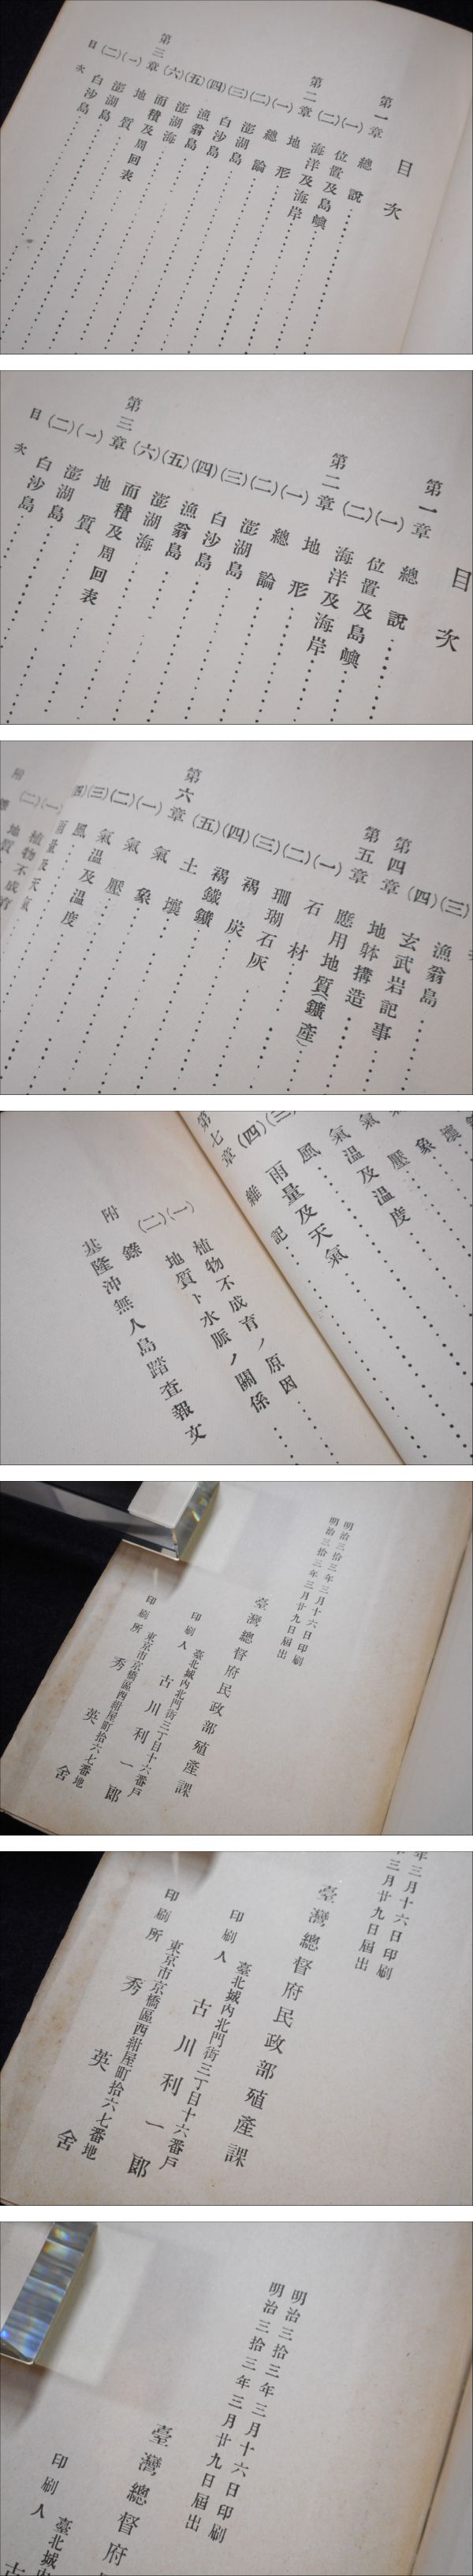 目次
第一章 總說
(一) 位置及島嶼
(二) 海洋及海岸
第二章 地形
(一) 總論
(二) 澎湖島
(三) 白沙島
(四) 漁翁島
(五) 澎湖海
(六) 面積及周回表
第三章 地質
(一) 澎湖島
(二) 白沙島
目次
目次
第一章 總說
(一) 位置及島嶼
(二) 海洋及海岸
第二章 地形
(一) 總論
(二) 澎湖島
(三) 白沙島
(四) 漁翁島
(五) 澎湖海
(六) 面積及周回表
第三章 地質
(一) 澎湖島
(二) 白沙島
目次
(三) 漁翁島
(四) 玄武岩記事
第四章 地躰搆造
第五章 應用地質(鑛產)
(一) 石材
(二) 珊瑚石灰
(三) 褐炭
(四) 褐鐵鑛
(五) 土壤
第六章 氣象
(一) 氣壓
(二) 氣溫及溫度
(三) 風
(四)
(一) 植物不成育
(二) 地質
附
壤
象
壓
氣溫及溫度
(三) 風
(四) 雨量及天氣
第七章 雜記
(一) 植物不成育ノ原因
(二) 地質ト水脈ノ關係
附錄
基隆沖無人島踏査報文
明治三拾三年三月十六日印刷
明治三拾三年三月廿九日屆出
臺灣總督府民政部殖產課
臺北城內北門街三丁目十六番戶
印刷人 古川利一郎
東京市京橋區西紺屋町拾六七番地
印刷所 秀英舍
年三月十六日印刷
三月廿九日屆出
臺灣總督府民政部殖產課
臺北城內北門街三丁目十六番戶
印刷人 古川利一郎
東京市京橋區西紺屋町拾六七番地
印刷所 秀英舍
明治三拾三年三月十六日印刷
明治三拾三年三月廿九日屆出
臺灣總督府
臺北城
印刷人 古